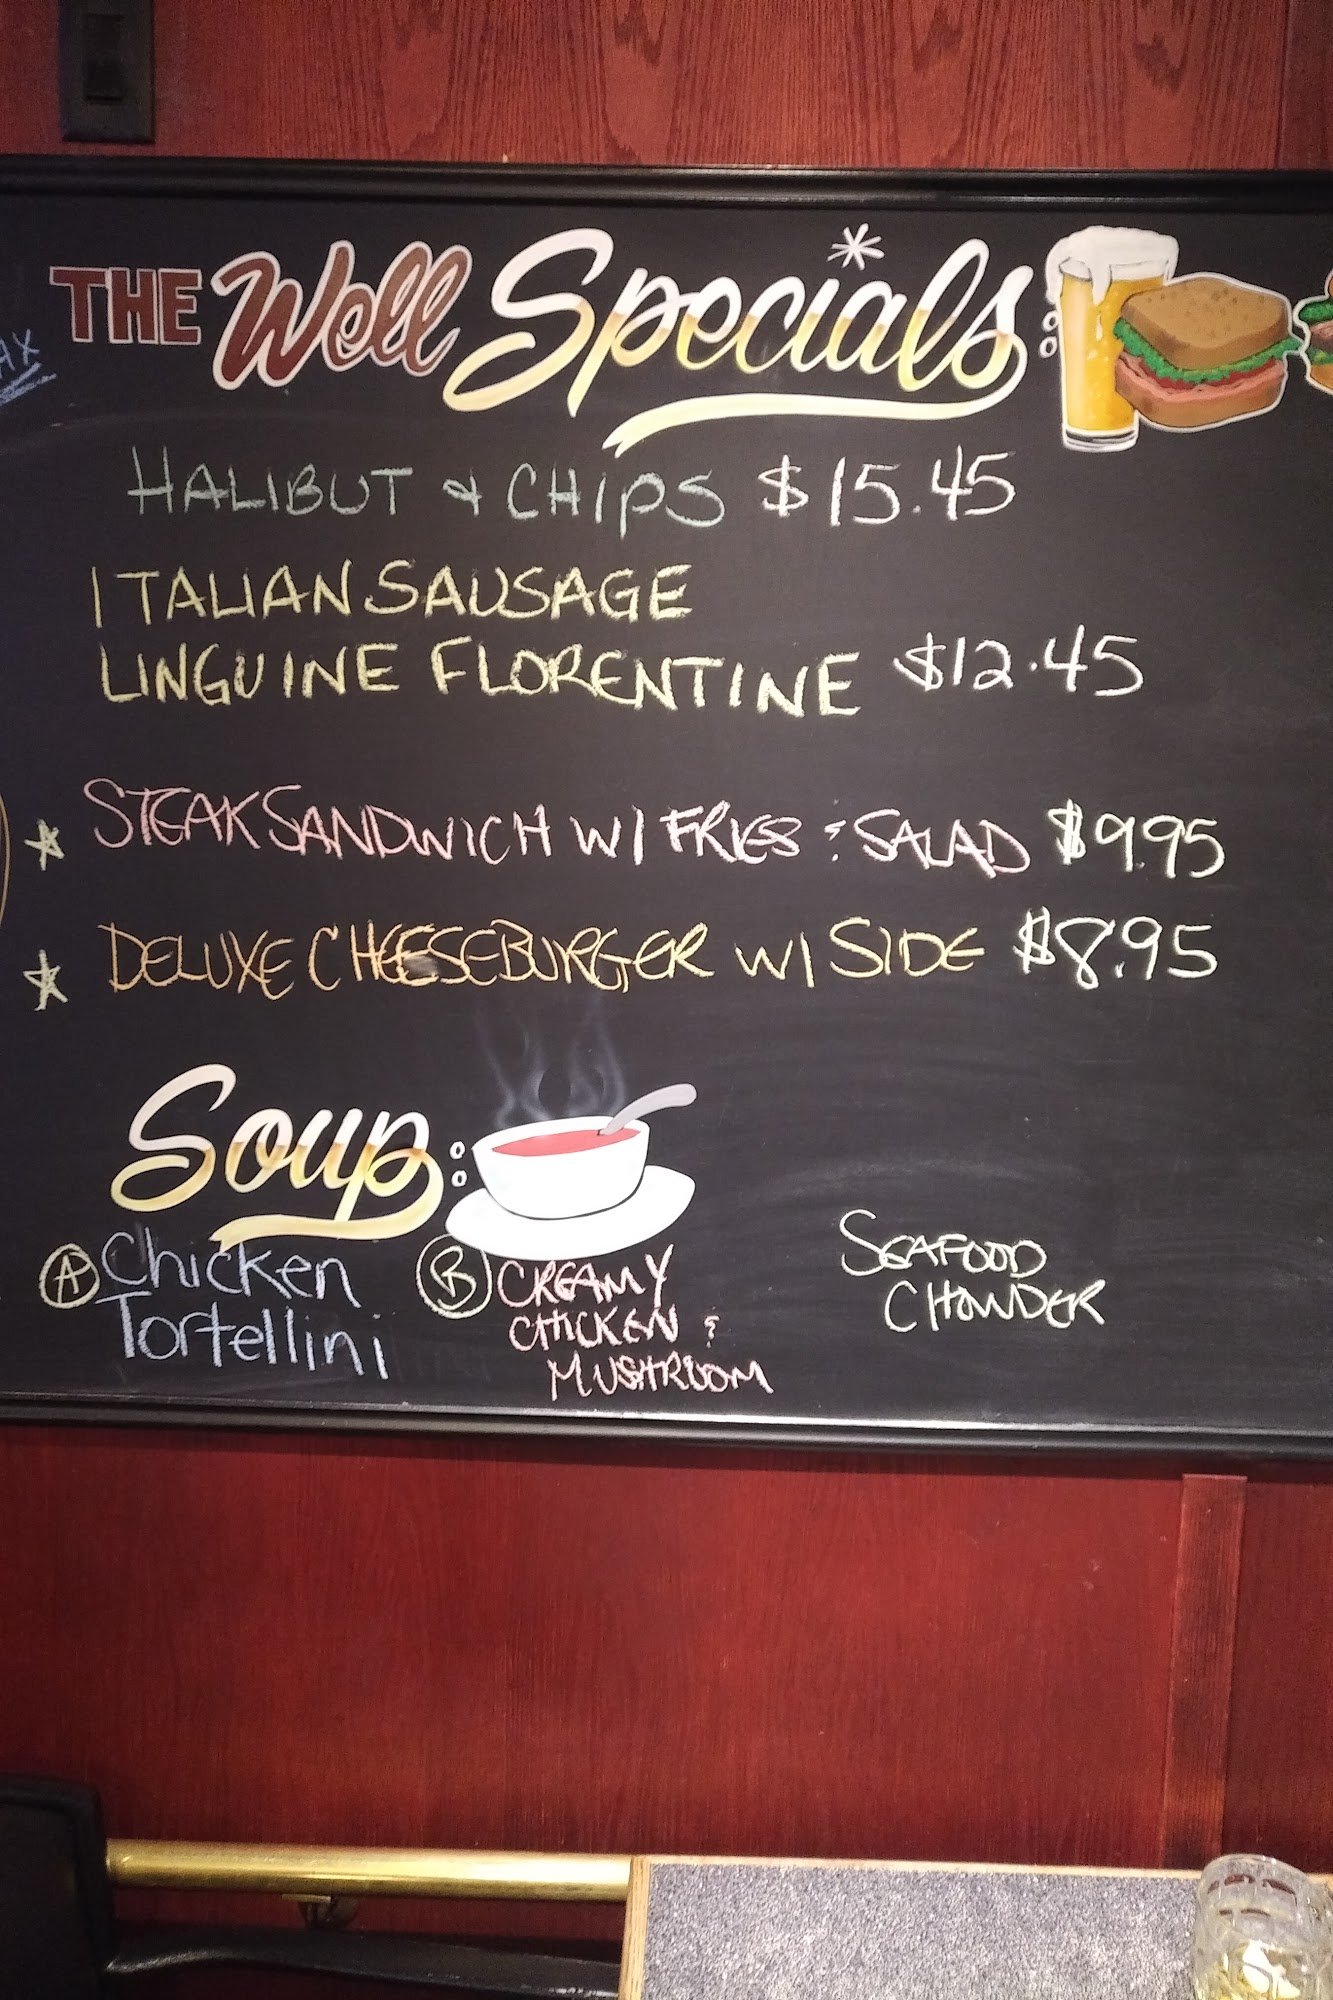 THE Well Specials:
HALIBUT & CHIPS $15.45
ITALIAN SAUSAGE
LINGUINE FLORENTINE $12.45
STEAK SANDWICH W/ FRIES & SALAD $9.95
DELUXE CHEESEBURGER W/ SIDE $8.95
Soup:
A Chicken
Tortellini
B CREAMY
CHICKEN &
MUSHROOM
SEAFOOD
CHOWDER